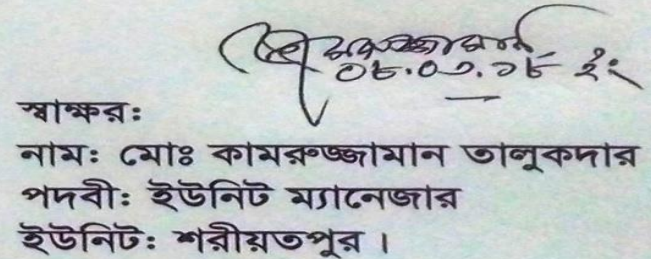 ০৮.০১.১৮ ইং
স্বাক্ষর:
নাম: মোঃ কামরুজ্জামান তালুকদার
পদবী: ইউনিট ম্যানেজার
ইউনিট: শরীয়তপুর।